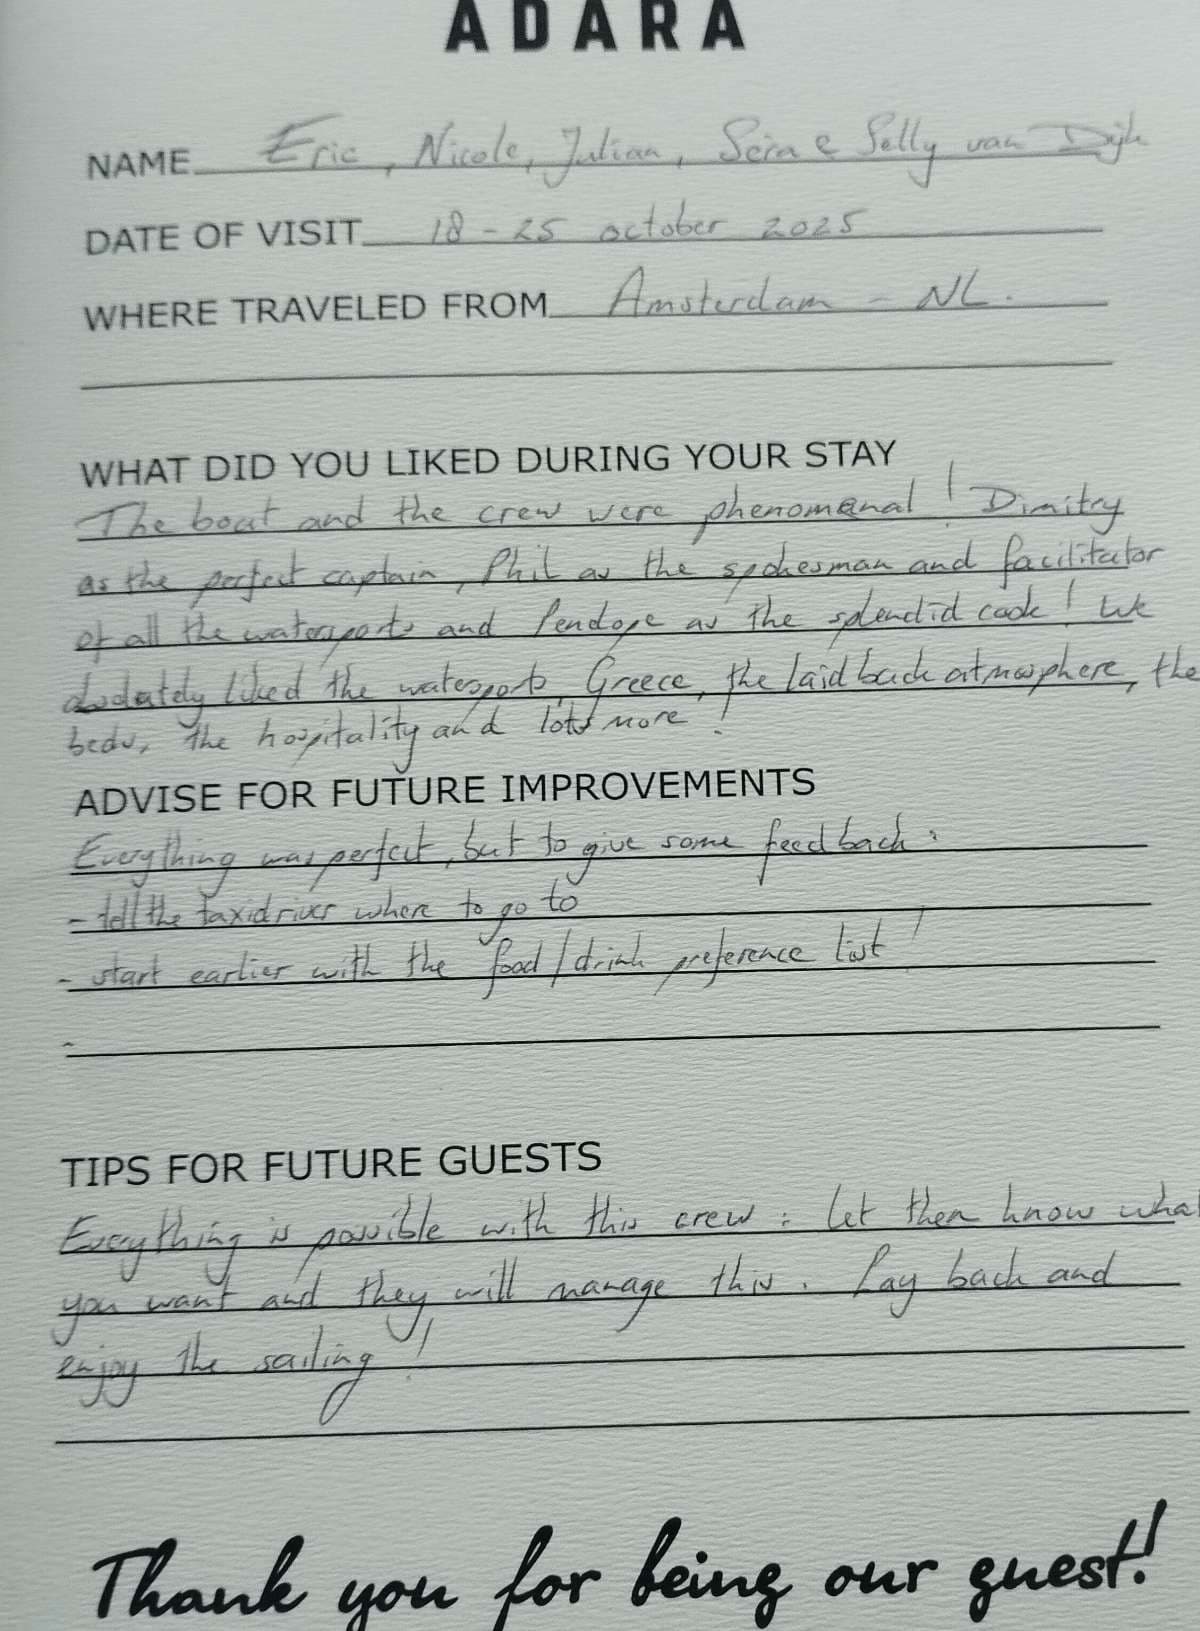 ADARA
NAME Eric, Nicole, Julian, Seina e Selly van Dijk
DATE OF VISIT 18 - 25 october 2025
WHERE TRAVELED FROM Amsterdam - NL.
WHAT DID YOU LIKED DURING YOUR STAY
The boat and the crew were phenomenal! Dimitry
as the perfect captain, Phil as the spokesman and facilitator
of all the watersports and Penelope as the splendid cook! We
absolutely liked the watersports, Greece, the laid back atmosphere, the
beds, the hospitality and lots more!
ADVISE FOR FUTURE IMPROVEMENTS
Everything was perfect, but to give some feedback:
- tell the taxidriver where to go to
- start earlier with the food/drink preference list!
-
TIPS FOR FUTURE GUESTS
Everything is possible with this crew: let them know what
you want and they will manage this. Lay back and
enjoy the sailing!
Thank you for being our guest!